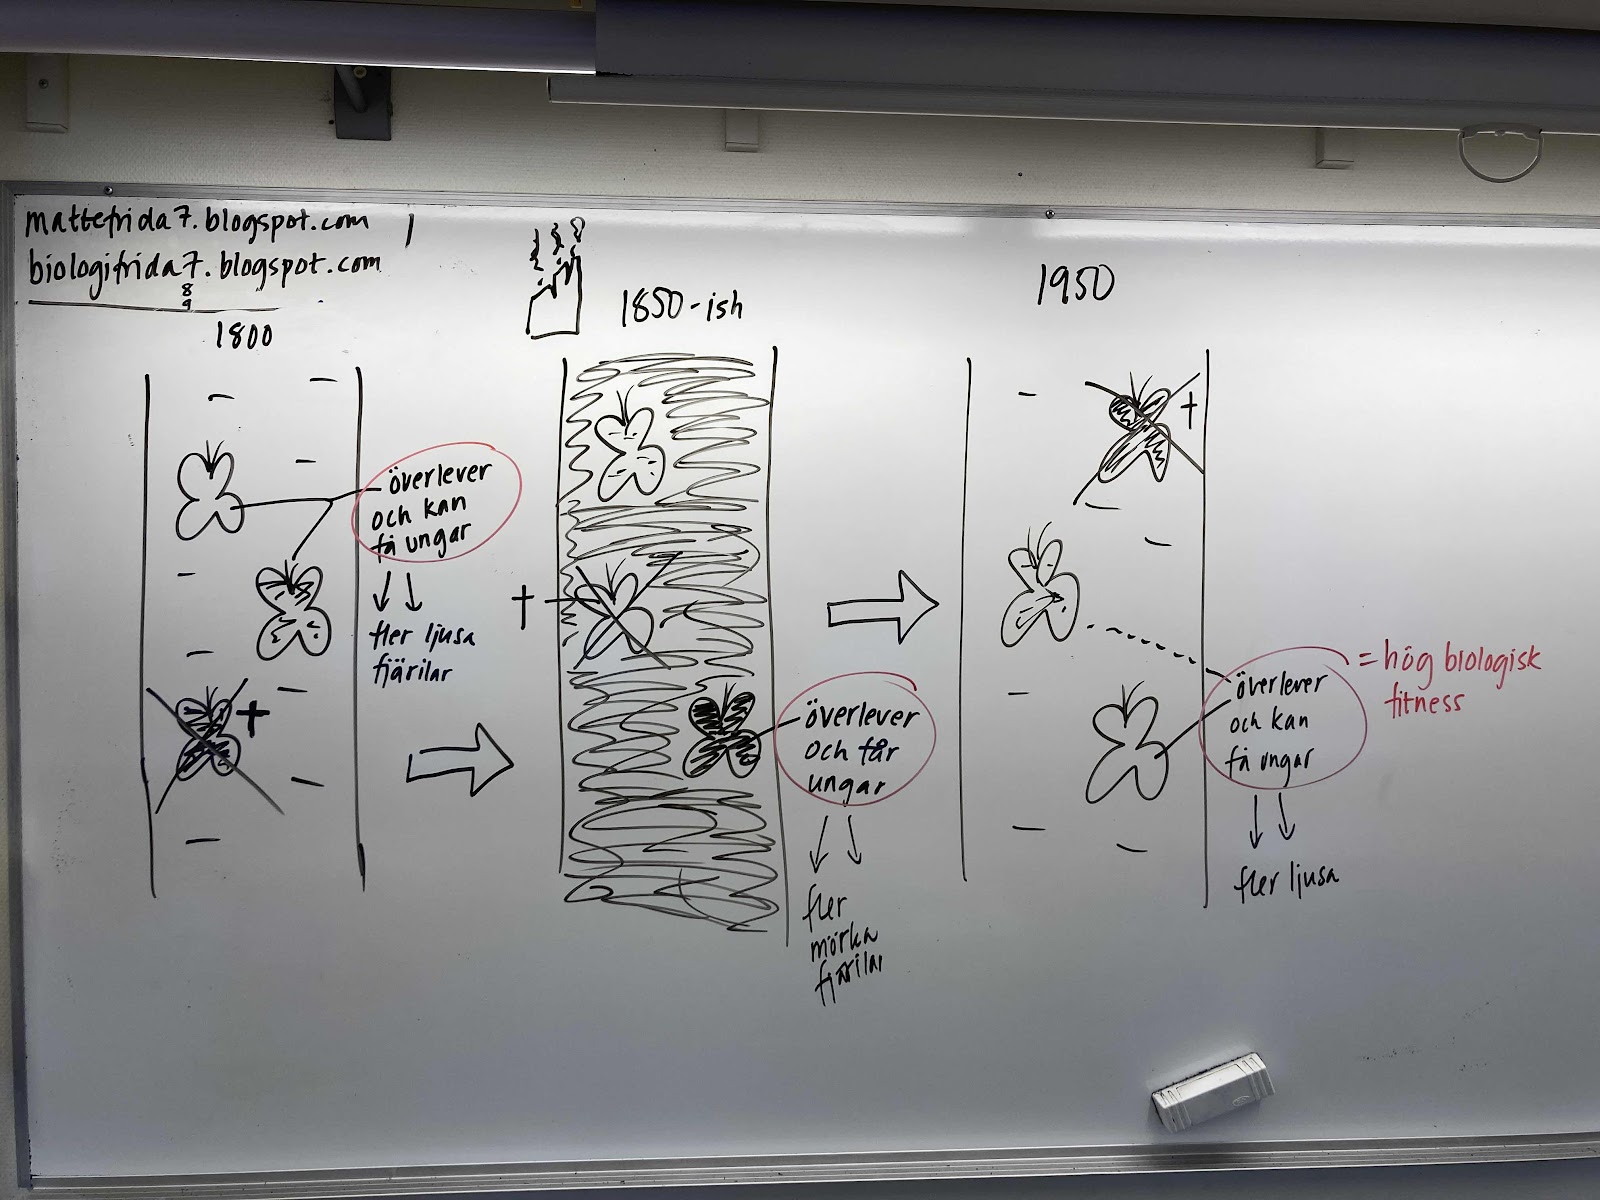 mattefrida7.blogspot.com
biologifrida7.blogspot.com
8
9
1800
överlever
och kan
få ungar
fler ljusa
fjärilar
1850-ish
överlever
och får
ungar
fler
mörka
fjärilar
1950
överlever
och kan
få ungar
= hög biologisk
fitness
fler ljusa